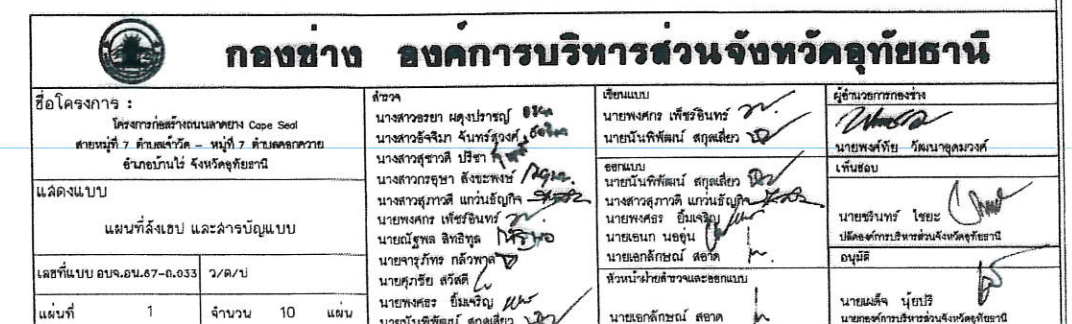 กองช่าง องค์การบริหารส่วนจังหวัดอุทัยธานี
ชื่อโครงการ :
โครงการก่อสร้างถนนลาดยาง Cape Seal
สายหมู่ที่ 7 ตำบลเจ้าวัด - หมู่ที่ 7 ตำบลคอกควาย
อำเภอบ้านไร่ จังหวัดอุทัยธานี
แสดงแบบ
แผนที่สังเขป และสารบัญแบบ
เลขที่แบบ อบจ.อน.67-ถ.033 ว/ด/ป
แผ่นที่ 1 จำนวน 10 แผ่น
สำรวจ
นางสาวอรยา ผดุงปราชญ์
นางสาวอัจจิมา จันทร์สุวงศ์
นางสาวสุชาวดี ปรีชา
นางสาวกรอุษา สังขะพงษ์
นางสาวสุภาวดี แกว่นธัญกิจ
นายพงศกร เพ็ชรอินทร์
นายณัฐพล สิทธิทูล
นายจารุภัทร กลัวพาล
นายศุภชัย สวัสดี
นายพงศธร ยิ้มเจริญ
นายนันพิพัฒน์ สกุลเสี่ยว
เขียนแบบ
นายพงศกร เพ็ชรอินทร์
นายนันพิพัฒน์ สกุลเสี่ยว
ออกแบบ
นายนันพิพัฒน์ สกุลเสี่ยว
นางสาวสุภาวดี แกว่นธัญกิจ
นายพงศธร ยิ้มเจริญ
นายเอนก นออุ่น
นายเอกลักษณ์ สอาด
หัวหน้าฝ่ายสำรวจและออกแบบ
นายเอกลักษณ์ สอาด
ผู้อำนวยการกองช่าง
นายพงศ์ทัย วัฒนาอุดมวงศ์
เห็นชอบ
นายชรินทร์ ไชยะ
ปลัดองค์การบริหารส่วนจังหวัดอุทัยธานี
อนุมัติ
นายเผด็จ นุ้ยปรี
นายกองค์การบริหารส่วนจังหวัดอุทัยธานี